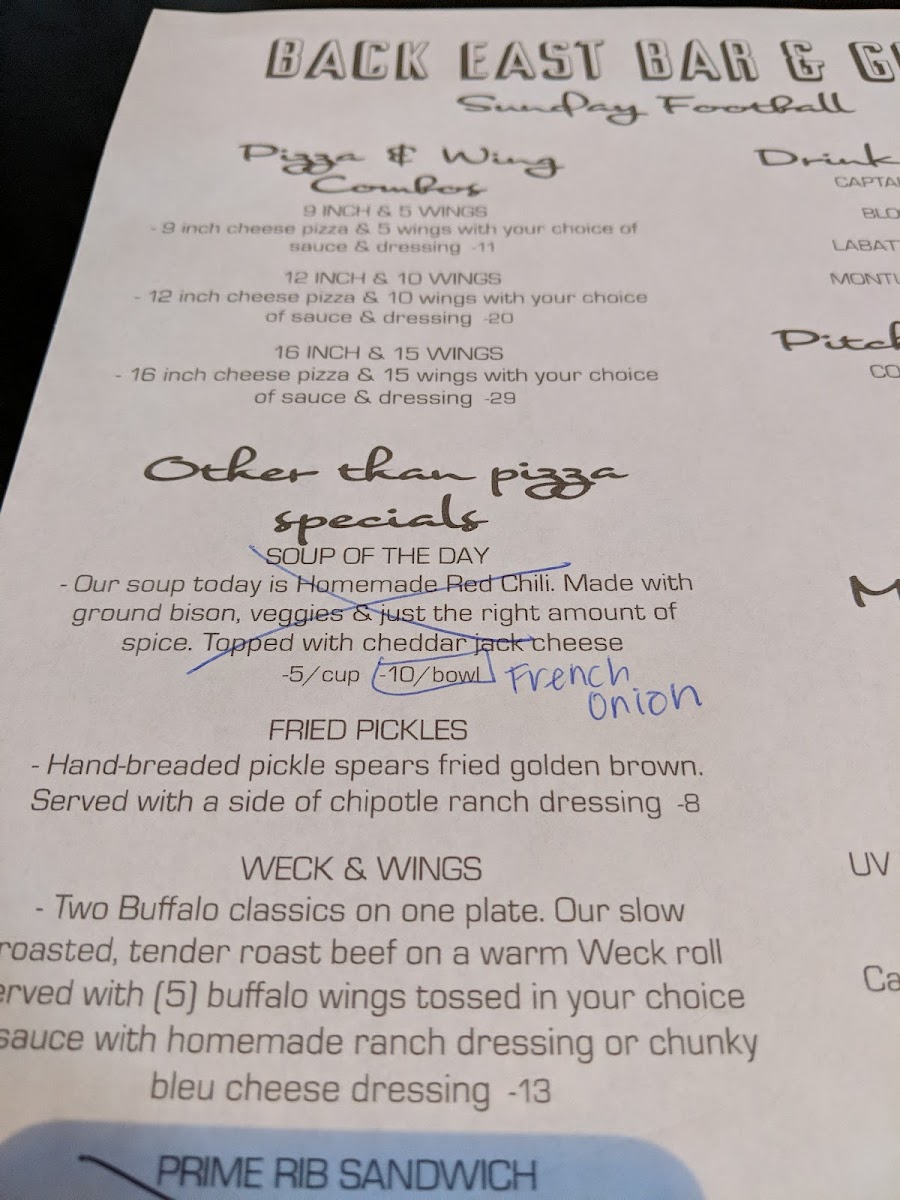 BACK EAST BAR &
Sunday Football
Pizza & Wing
Combos
9 INCH & 5 WINGS
- 9 inch cheese pizza & 5 wings with your choice of
sauce & dressing -11
12 INCH & 10 WINGS
- 12 inch cheese pizza & 10 wings with your choice
of sauce & dressing -20
16 INCH & 15 WINGS
- 16 inch cheese pizza & 15 wings with your choice
of sauce & dressing -29
Other than pizza
specials
SOUP OF THE DAY
- Our soup today is Homemade Red Chili. Made with
ground bison, veggies & just the right amount of
spice. Topped with cheddar jack cheese
-5/cup -10/bowl French
Onion
FRIED PICKLES
- Hand-breaded pickle spears fried golden brown.
Served with a side of chipotle ranch dressing -8
WECK & WINGS
- Two Buffalo classics on one plate. Our slow
roasted, tender roast beef on a warm Weck roll
erved with (5) buffalo wings tossed in your choice
sauce with homemade ranch dressing or chunky
bleu cheese dressing -13
PRIME RIB SANDWICH
Drink
CAPTA
BLO
LABAT
MONT
Pitch
CO
M
UV
Ca